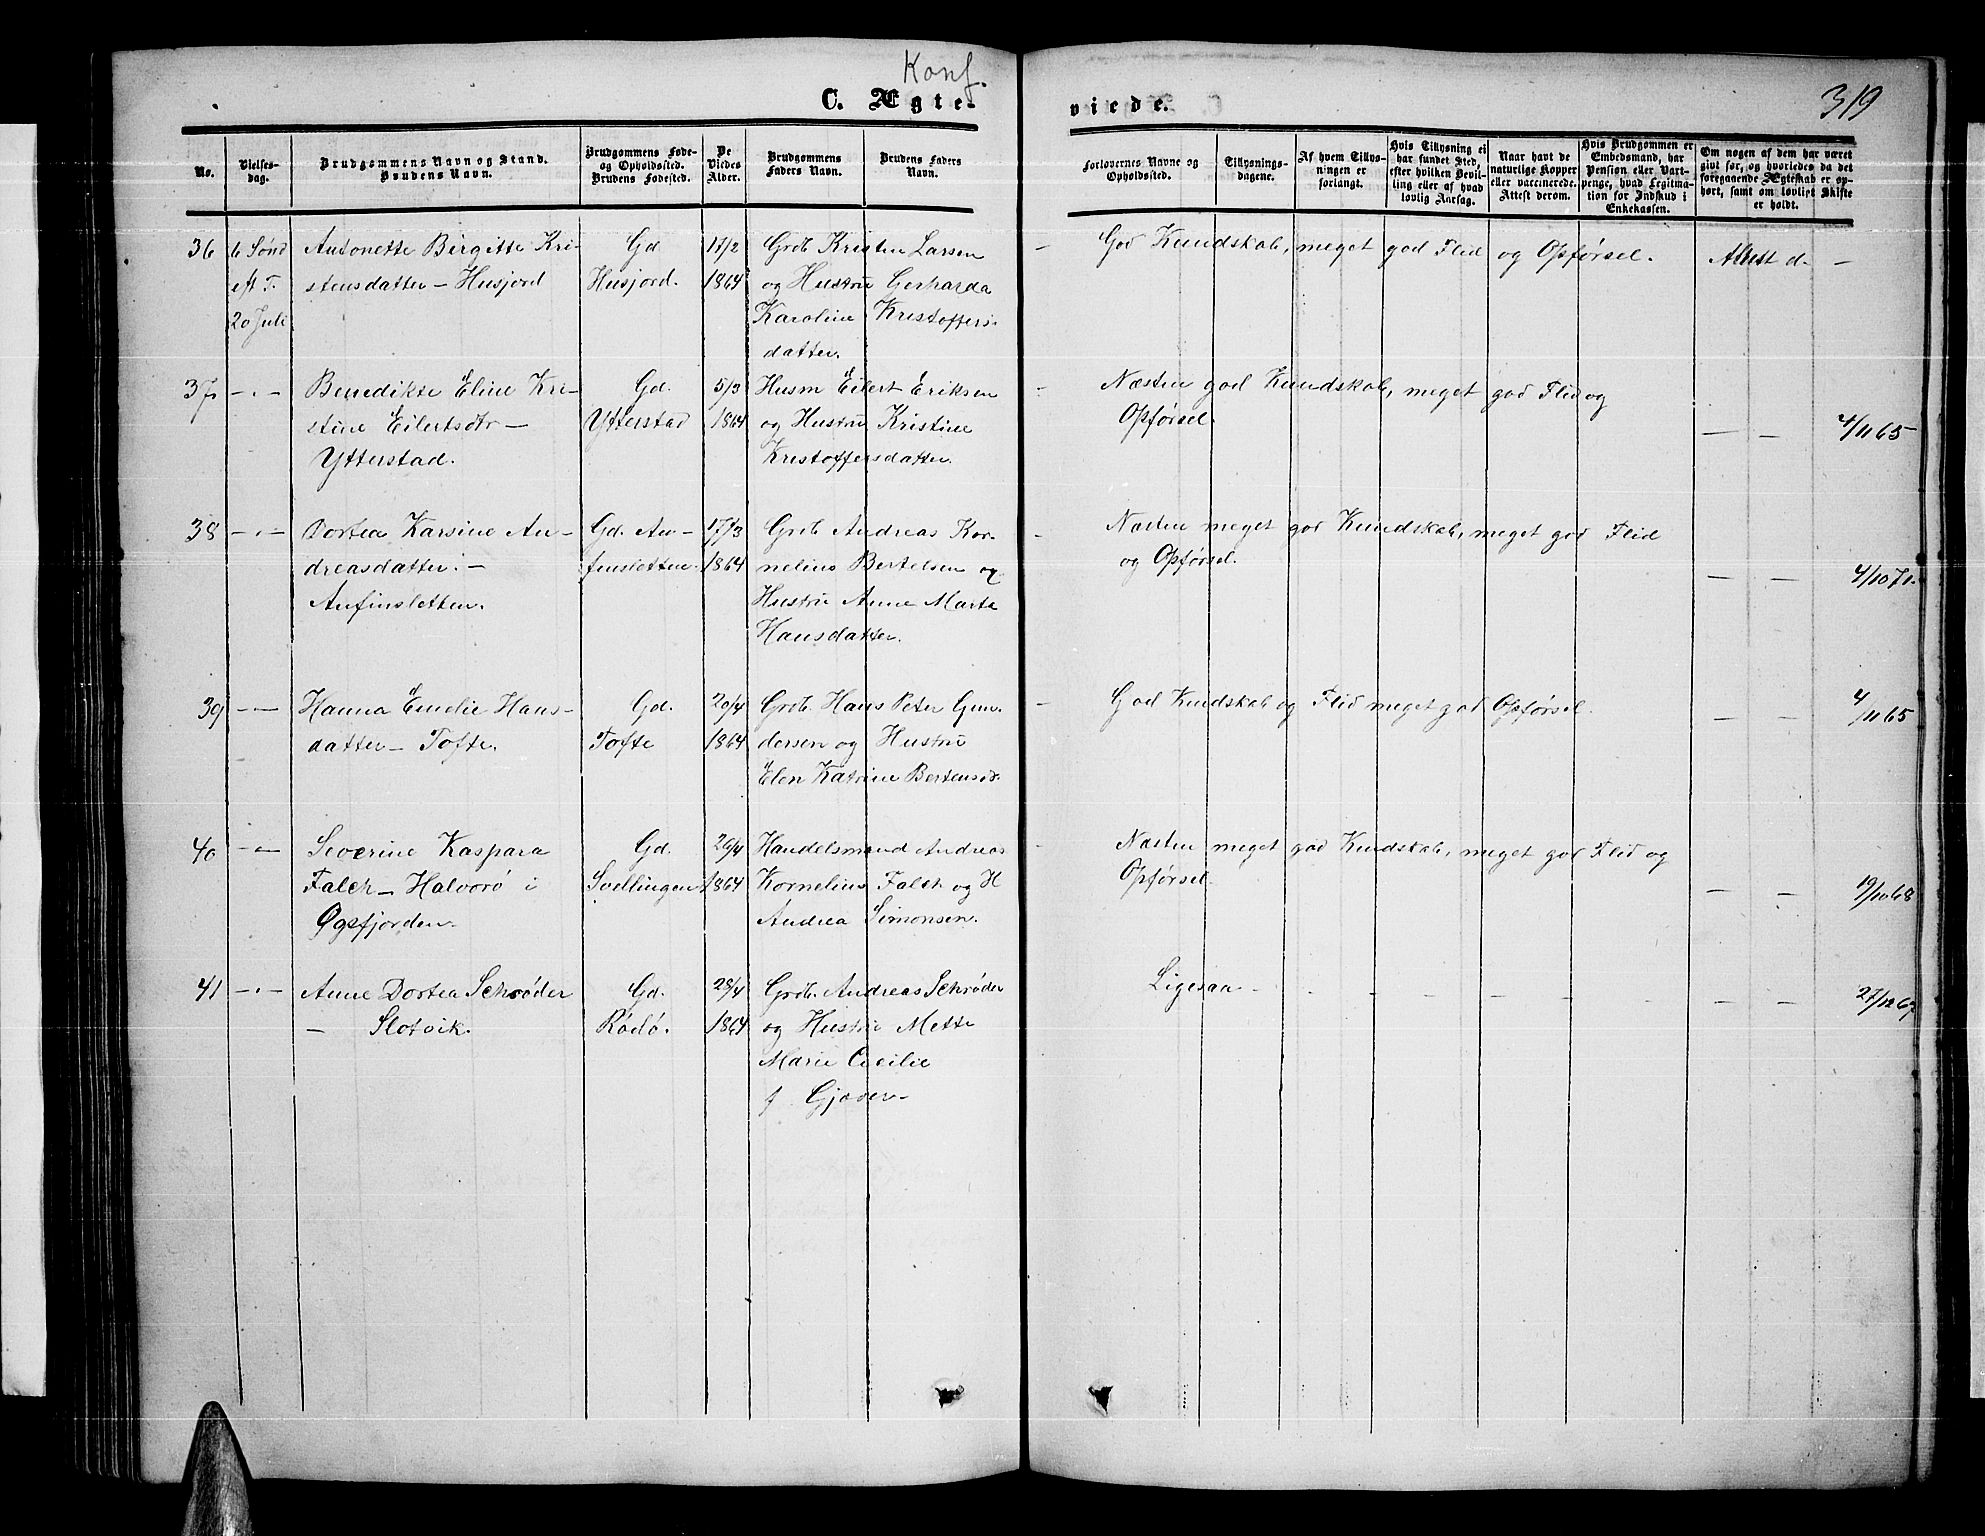 Konf.
C. Ægteviede.
319
No.
Vielsesdag.
Brudgommens Navn og Stand.
Brudens Navn.
Brudgommens Føde-
og Opholdsted.
Brudens Fødested.
De
Viedes
Alder.
Brudgommens
Faders Navn.
Brudens Faders
Navn.
Forlovernes Navne og
Opholdssted.
Tillysnings-
dagene.
Af hvem Tillys-
ningen er
forlangt.
Hvis Tillysning ei
har fundet Sted,
efter hvilken Bevil-
ling eller af hvad
lovlig Aarsag.
Naar havt de
naturlige Kopper
eller vaccinerede.
Attest derom.
Hvis Brudgommen er
Embedsmand, har
Pension eller Vart-
penge, hvad Legitima-
tion for Indskud i
Enkekassen.
Om nogen af dem har været
givt før, og hvorledes da det
foregaaende Ægteskab er op-
hørt, samt om lovligt Skifte
er holdt.
36
6 Sønd
eft T.
20 Juli
Antonette Birgitte Kri-
stensdatter - Husjord
Gd
Husjord.
17/2
1864
Grdb Kristen Larsen
og Hustru Gerharda
Karoline Kristoffers-
datter.
God Kundskab, meget god Flid og Opførsel.
Attest d. -
37
- . -
Benedikte Eline Kri-
stine Eilertsdtr -
Ytterstad.
Gd.
Ytterstad
5/3
1864
Husm Eilert Eriksen
og Hustru Kristine
Kristoffersdatter.
Næsten god Kundskab, meget god Flid og
Opførsel.
- - 4/11 65
38
- . -
Dortea Karsine An-
dreasdatter. -
Anfinsletten.
Gd. An-
finsletten.
17/3
1864
Grdb Andreas Kor-
nelius Bertelsen og
Hustru Anne Marta
Hansdatter.
Næsten meget god Kundskab, meget god Flid
og Opførsel.
- - 4/10 71.
39
- -
Hanna Emelie Hans-
datter - Tofte.
Gd.
Tofte
20/4
1864
Grdb. Hans Peter Gun-
dersen og Hustru
Elen Katrine Bertensdr.
God Kundskab og Flid meget god Opførsel.
- - 4/11 65
40
- -
Severine Kaspara
Falch - Halvorø i
Øgsfjorden.
Gd.
Svellingen
20/4
1864
Handelsmand Andreas
Kornelius Falch og H
Andrea Simonsen.
Næsten meget god Kundskab, meget god Flid og
Opførsel.
- - 19/10 68
41
- . -
Anne Dortea Schrøder
- Slotvik.
Gd.
Rødø.
28/4
1864
Grdb. Andreas Schrøder
og Hustru Mette
Marie Cecilie
f. Gjæver-
Ligesaa - - - - - - - 27/12 67